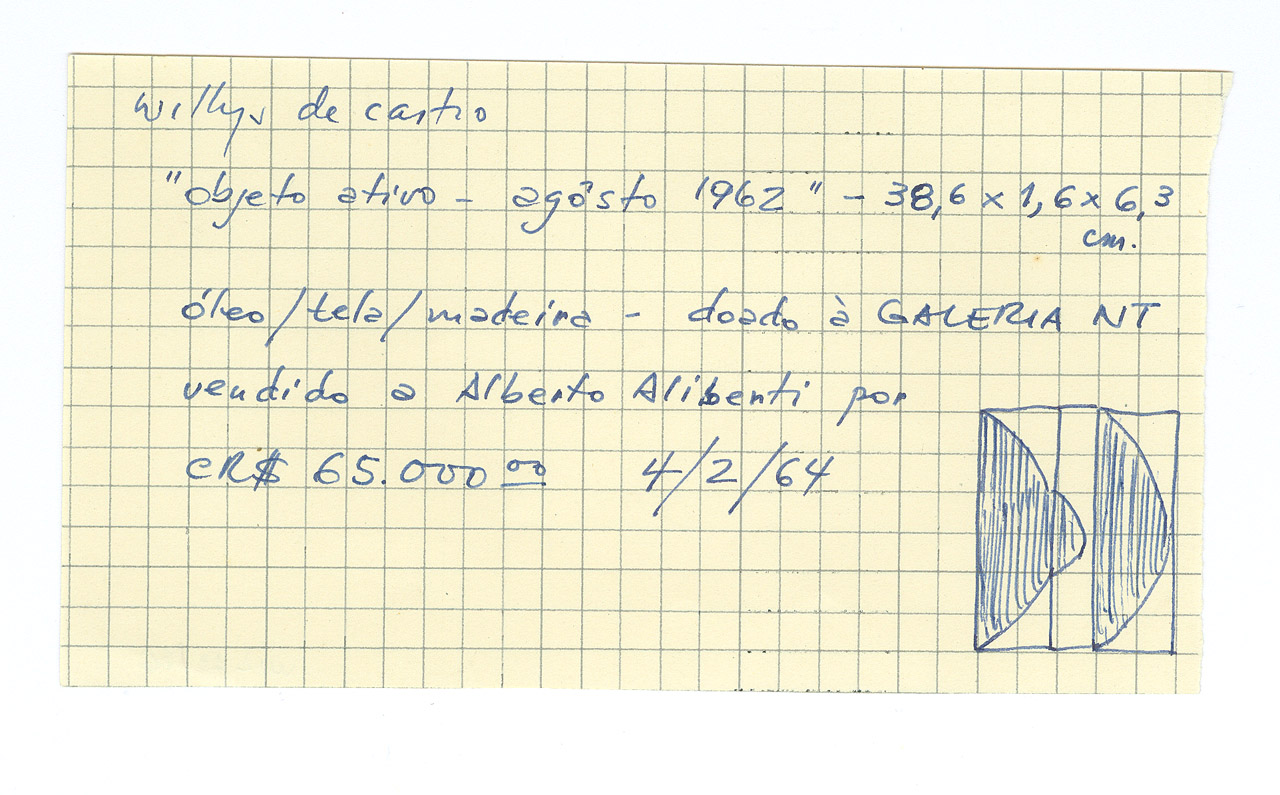 willys de castro
"objeto ativo - agôsto 1962" - 38,6 x 1,6 x 6,3
cm.
óleo/tela/madeira - doado à GALERIA NT
vendido a Alberto Alibenti por
CR$ 65.000 00 4/2/64